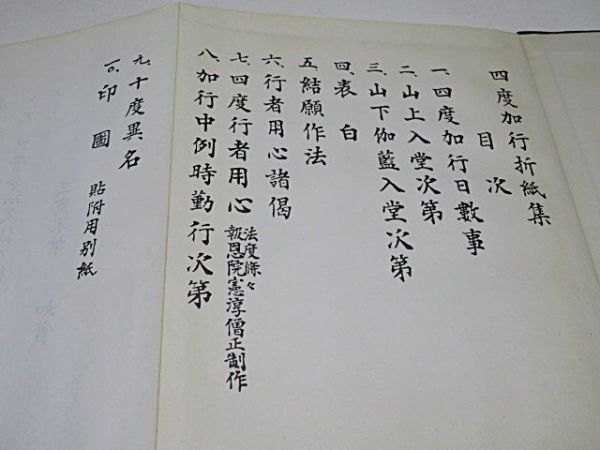 四度加行折紙集
目次
一、四度加行日數事
二、山上入堂次第
三、山下伽藍入堂次第
四、表白
五、結願作法
六、行者用心諸偈
七、四度行者用心 法度條々 報恩院憲淳僧正制作
八、加行中例時勤行次第
九、十度異名
一〇、印圖 貼附用別紙